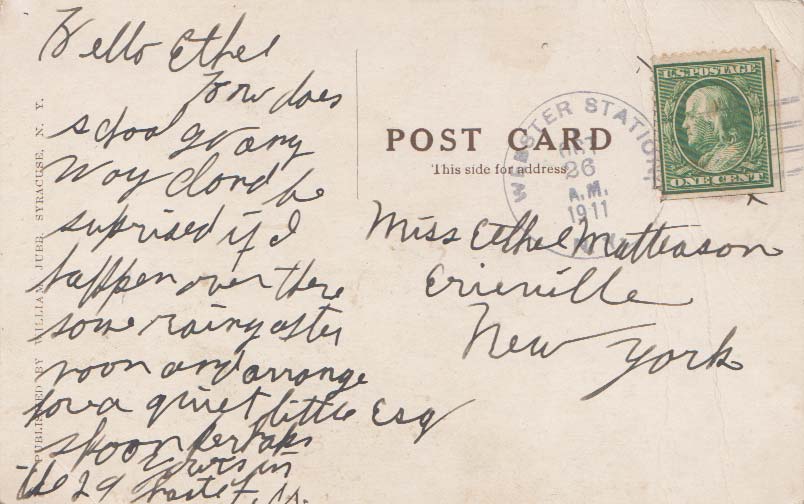 Hello Ethel
How does
school go any
way dond be
suprised if I
happen over there
some rainy after
noon and arrange
for a quiet little
spoon perhaps
the 29 Yours in
Esq
PUBLISHED BY WILLIAM JUBB, SYRACUSE, N. Y.
POST CARD
This side for address
WEBSTER STATION
OCT
26
A.M.
1911
N.Y.
U.S. POSTAGE
ONE CENT
Miss Ethel Matteason
Erieville
New York